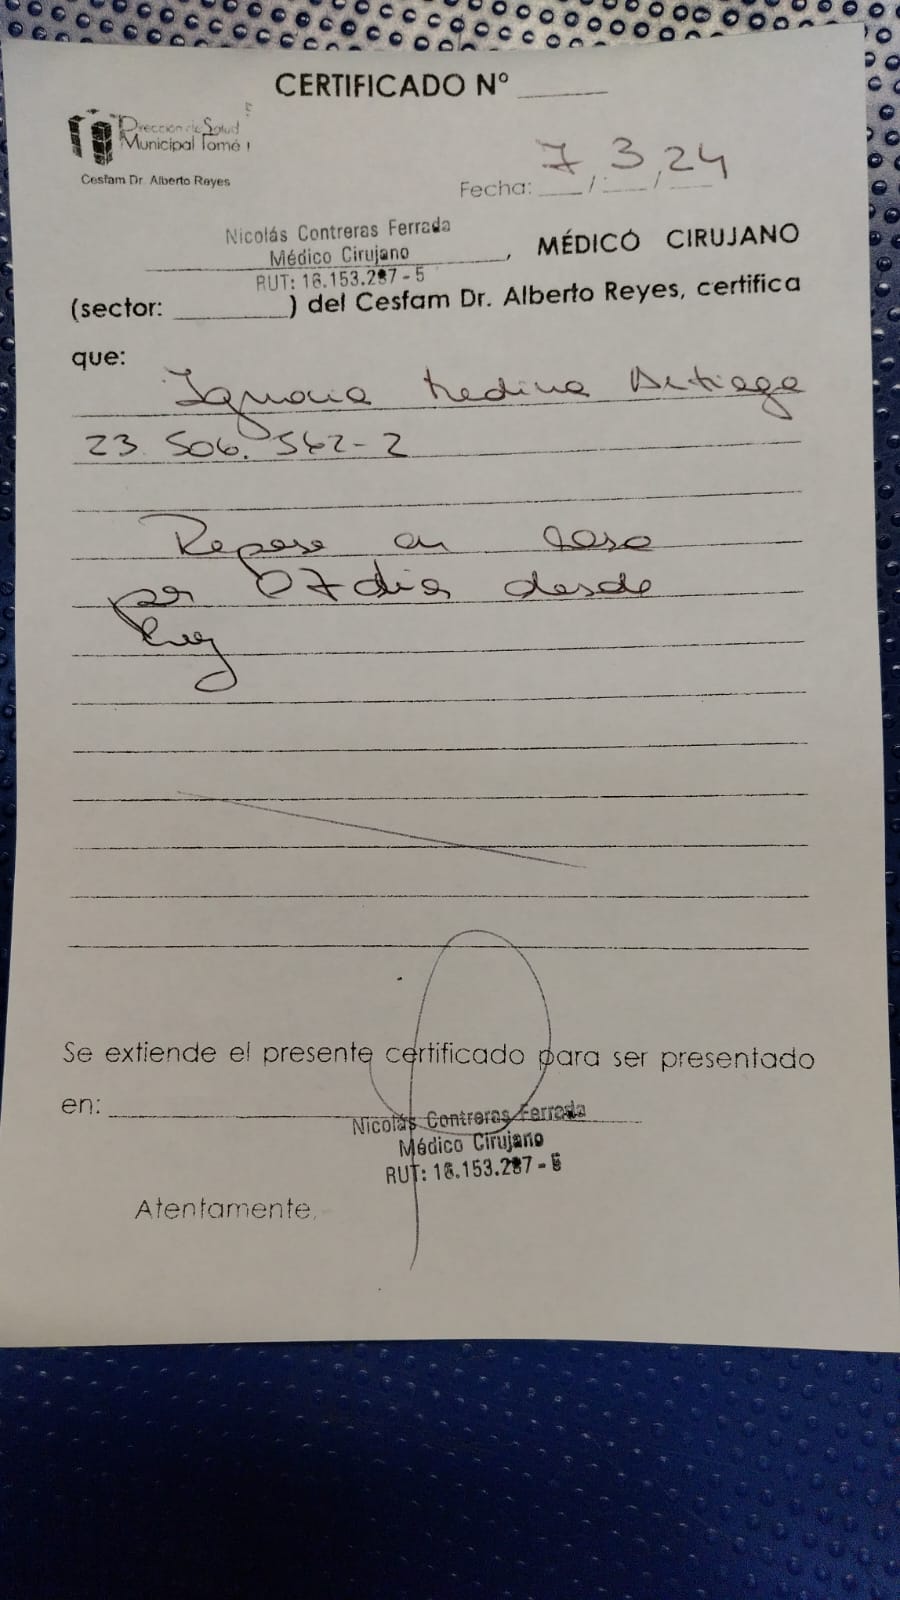 CERTIFICADO N° ______
Dirección de Salud
Municipal Tomé
Cesfam Dr. Alberto Reyes
Fecha: 7/3/24
Nicolás Contreras Ferrada
Médico Cirujano
RUT: 16.153.287-5
, MÉDICO CIRUJANO
(sector: ________) del Cesfam Dr. Alberto Reyes, certifica
que:
Ignacia Medina Artiaga
23.506.562-2
Reposo en casa
por 07 dias desde
hoy
Se extiende el presente certificado para ser presentado
en: ________
Nicolás Contreras Ferrada
Médico Cirujano
RUT: 16.153.287-5
Atentamente,